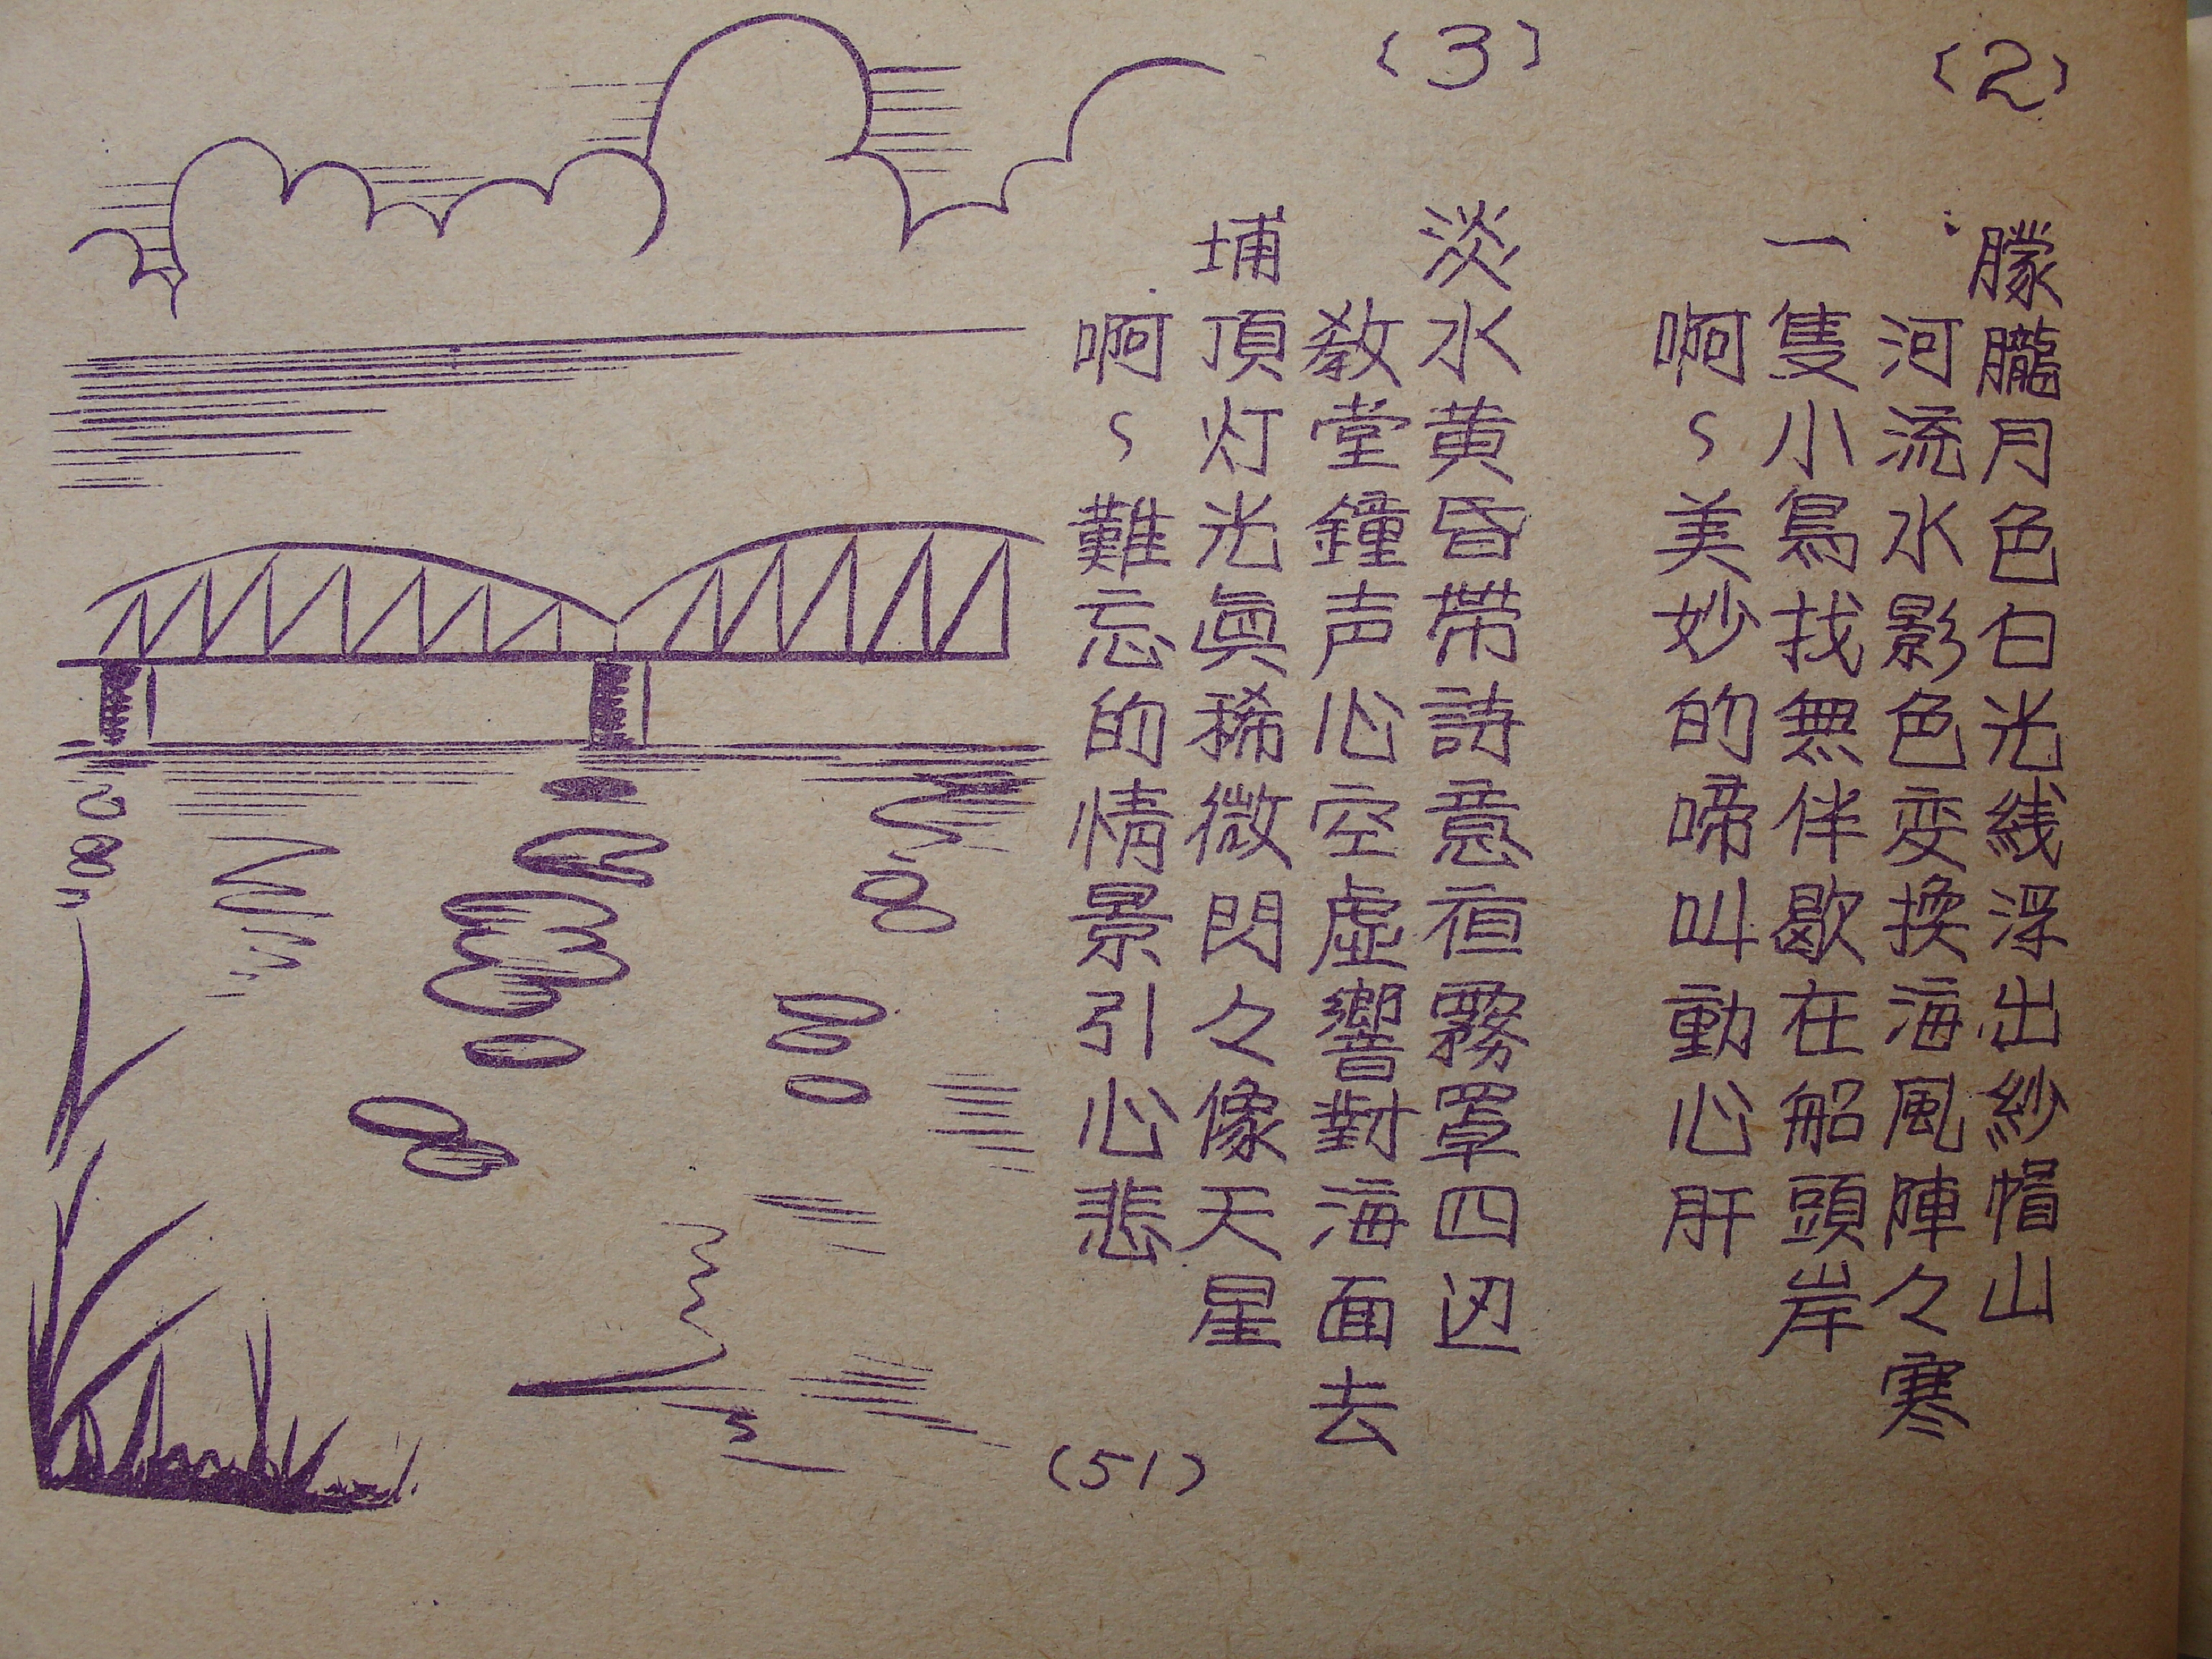 (2)
朦朧月色白光线浮出紗帽山
河流水影色変換海風陣々寒
一隻小鳥找無伴歇在船頭岸
啊～美妙的啼叫動心肝
(3)
淡水黄昏帶詩意夜霧罩四边
教堂鐘声心空虛響對海面去
埔頂灯光眞稀微閃々像天星
啊～難忘的情景引心悲
(51)